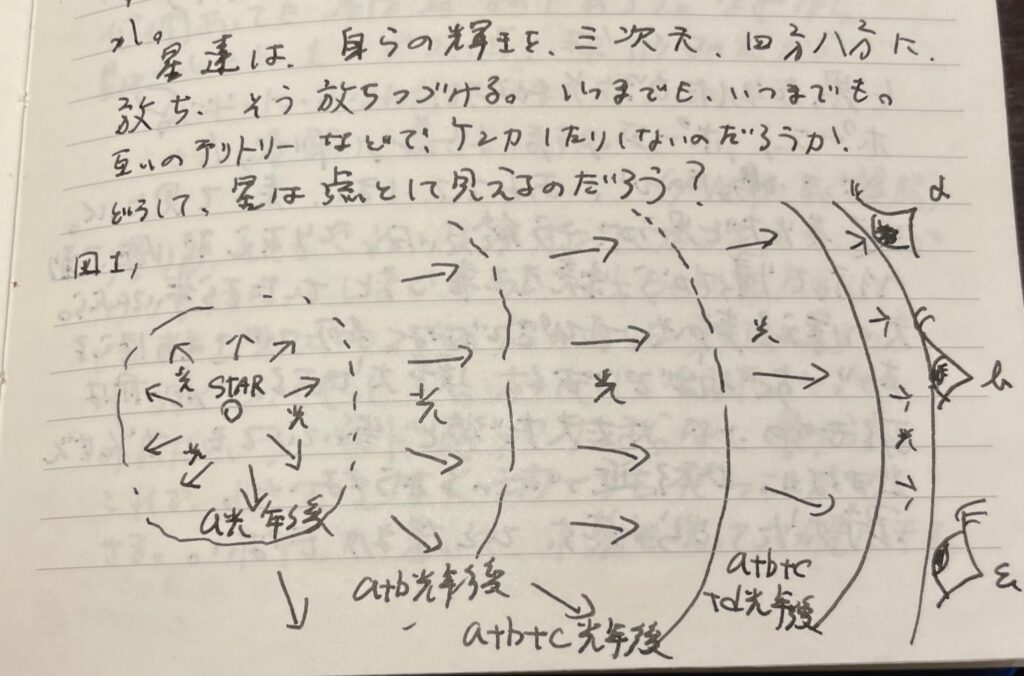 星達は、自らの輝きを、三次元、四方八方に、
放ち、そう放ちつづける。いつまでも、いつまでも。
互いのテリトリーなどで、ケンカしたりしないのだろうか!
どうして、星は点として見えるのだろう?
図1,
光
STAR
光
光
光
光
光
光
a光年後
a+b光年後
a+b+c光年後
a+b+c
+d光年後
α